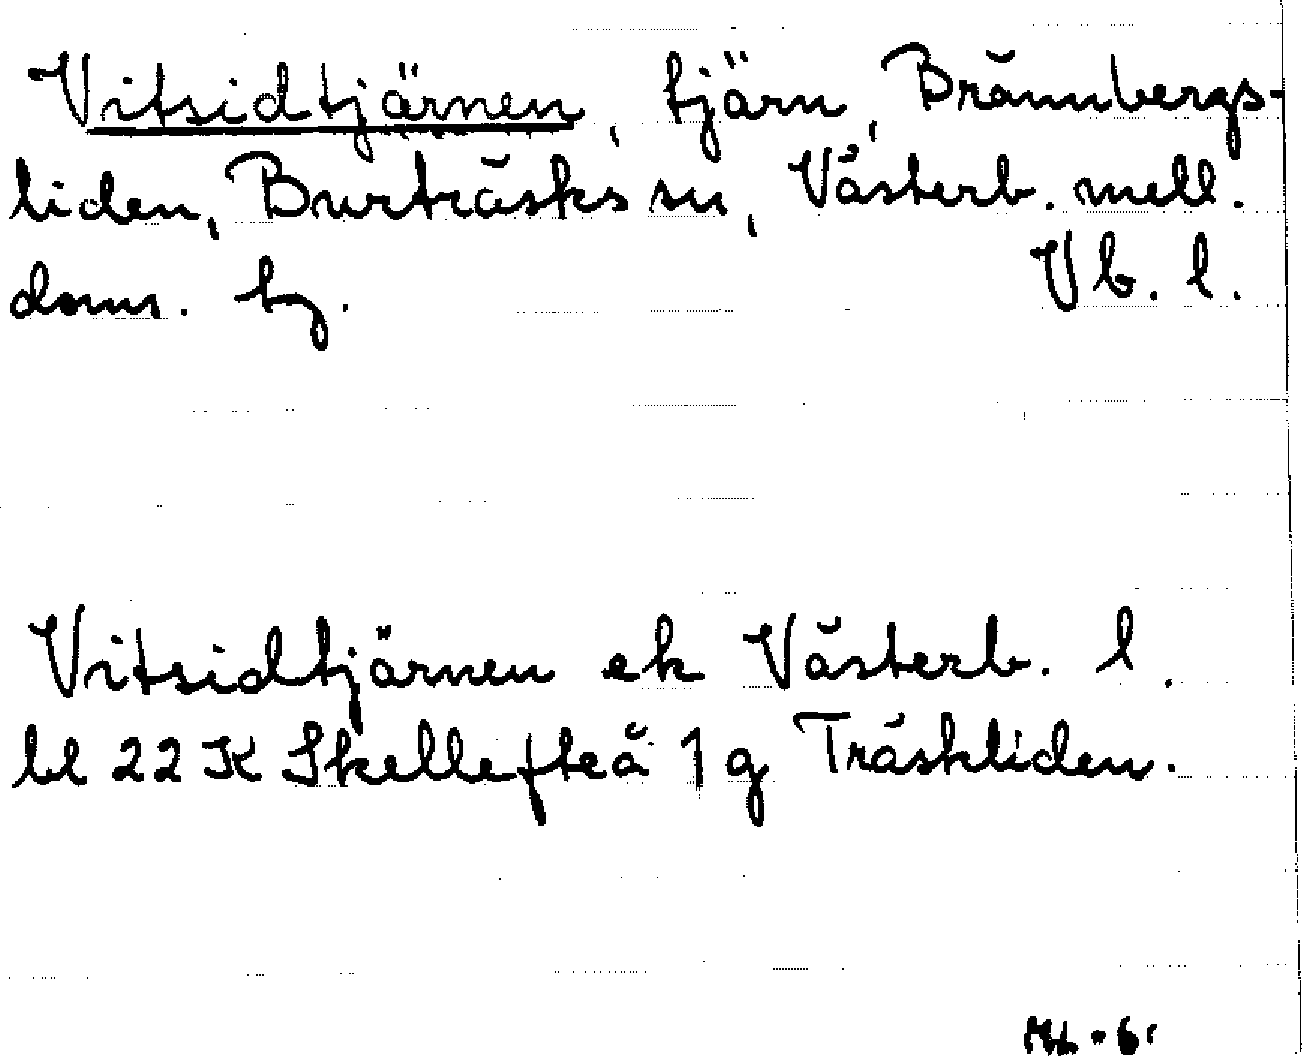 Vitsidtjärnen, tjärn, Brännbergs-
liden, Burträsks sn, Västerb. mell.
doms. hz.
Vb. l.
Vitsidtjärnen ek Västerb. l.
bl 22 K Skellefteå 1 g Träskliden.